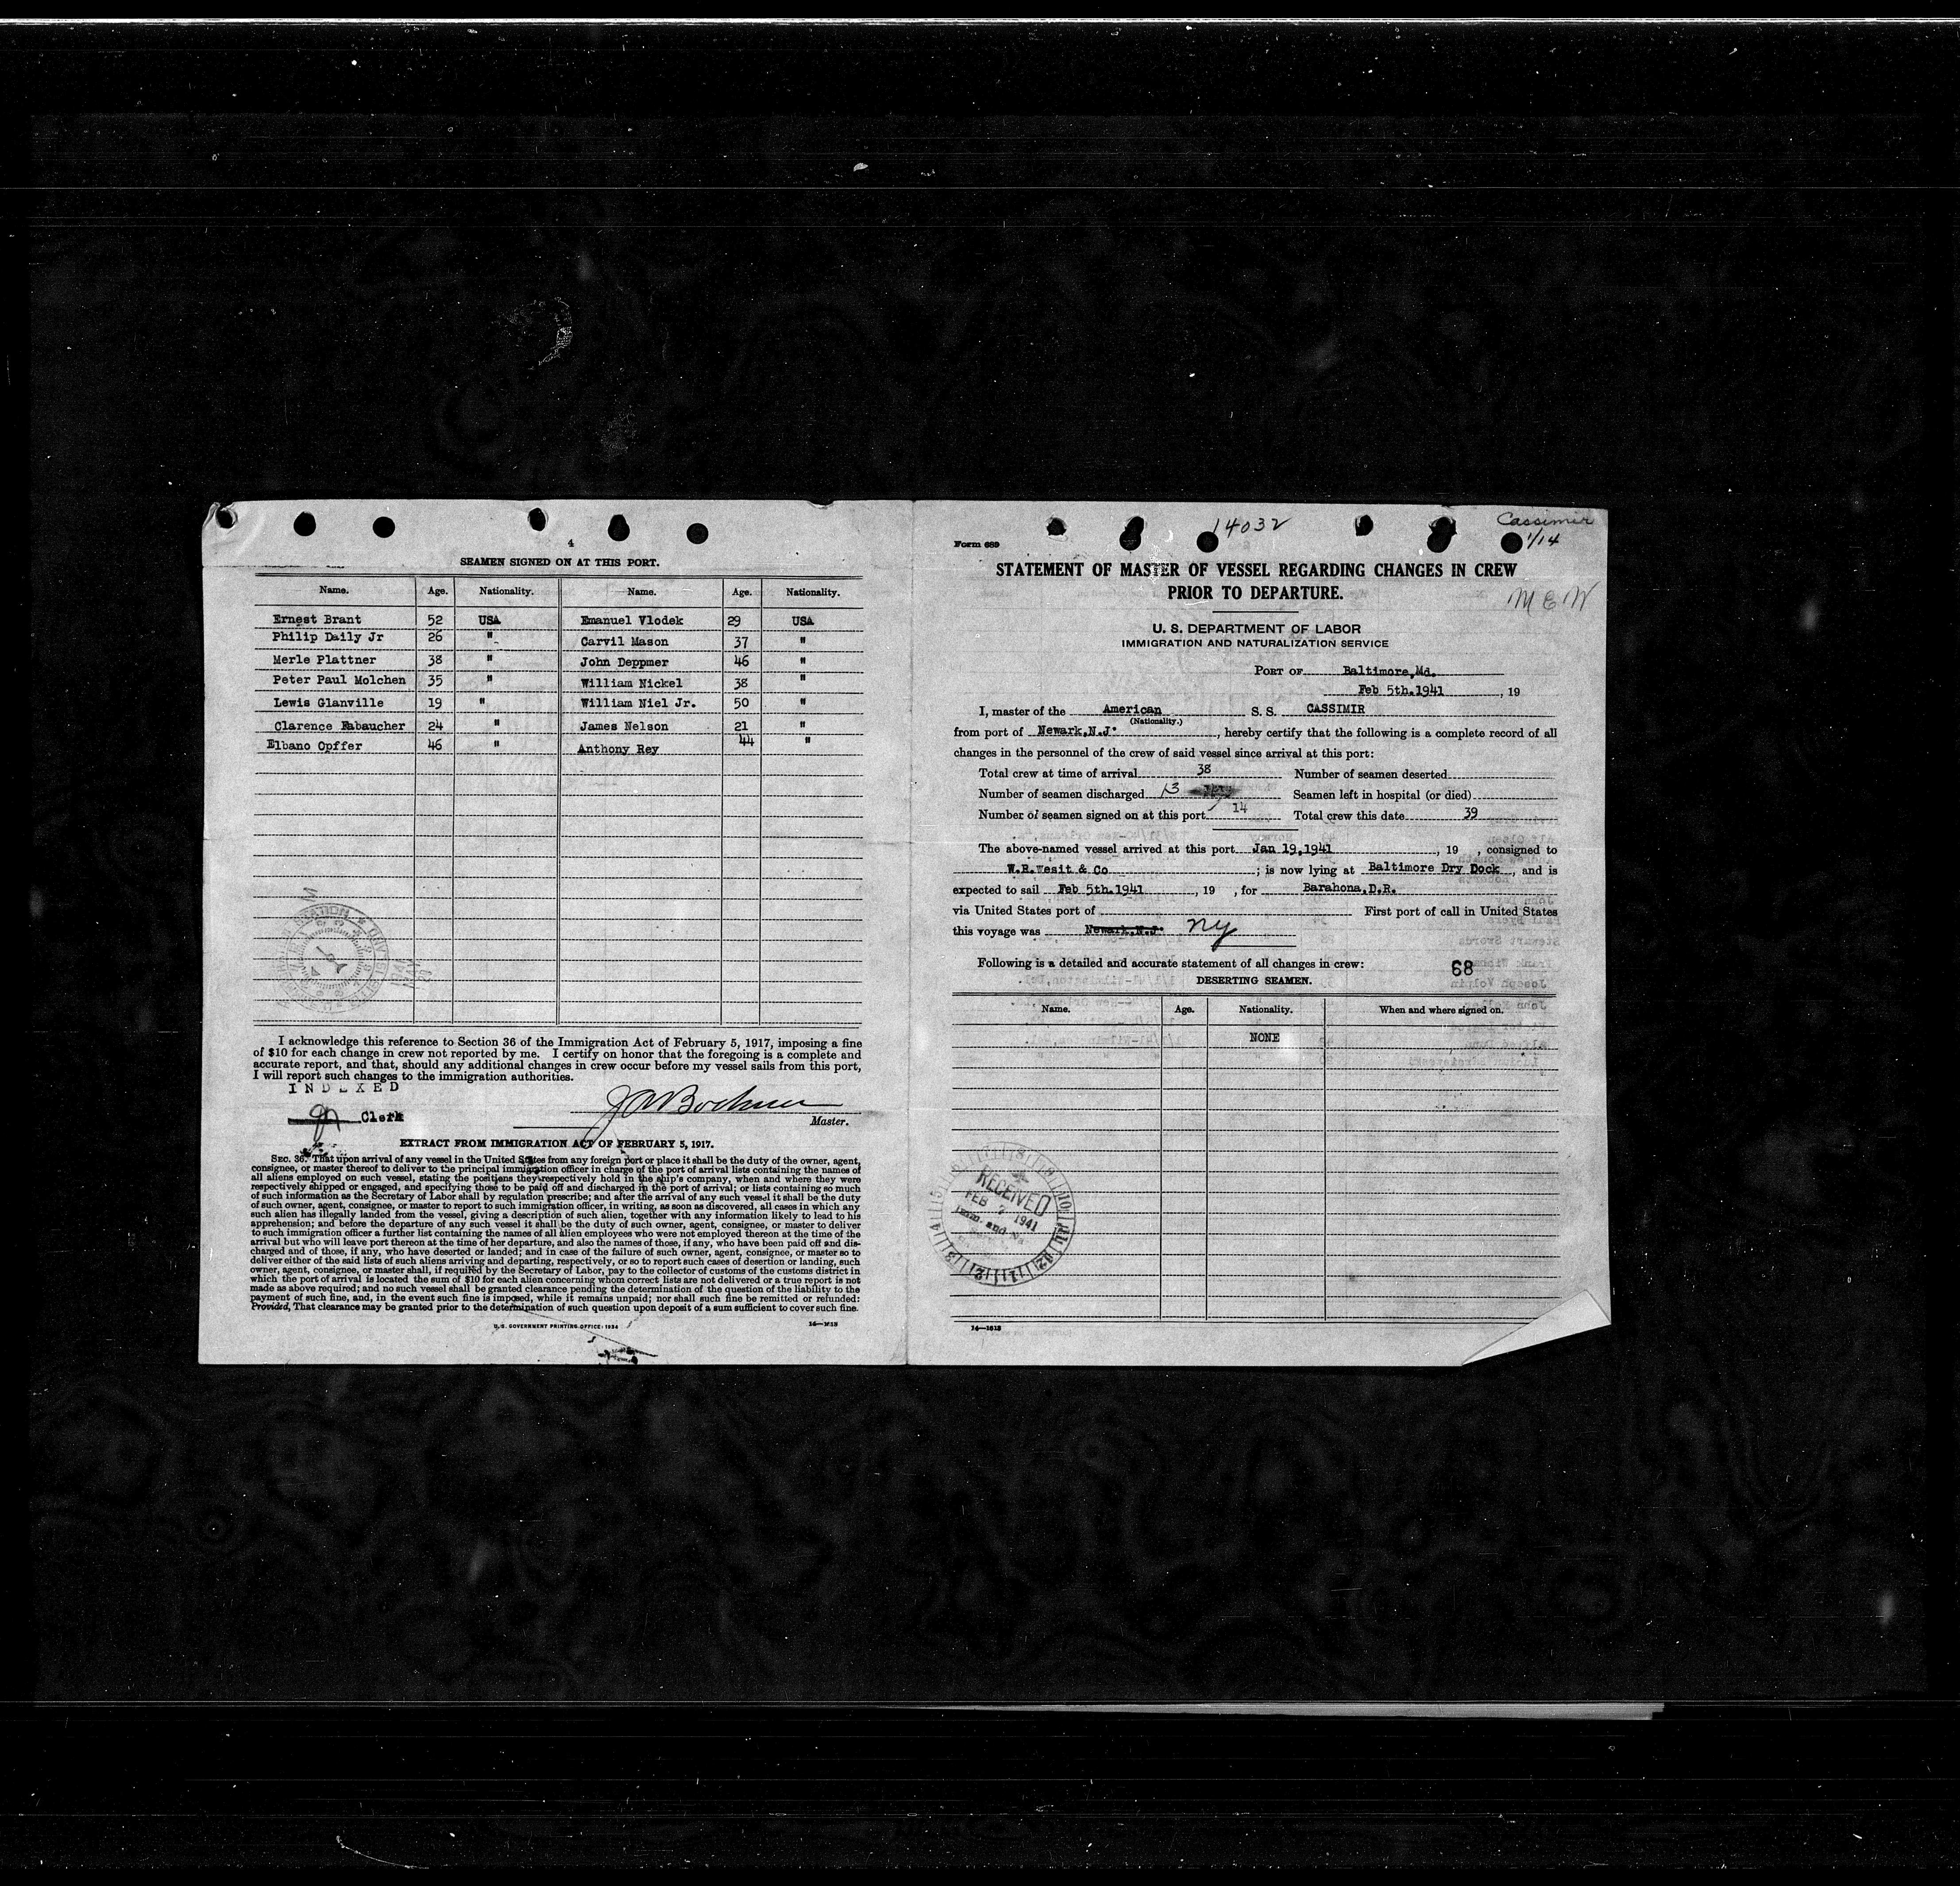 4
SEAMEN SIGNED ON AT THIS PORT.
Name. Age. Nationality. Name. Age. Nationality.
Ernest Brant 52 USA Emanuel Vlodek 29 USA
Philip Daily Jr 26 " Carvil Mason 37 "
Merle Plattner 38 " John Deppmer 46 "
Peter Paul Molchen 35 " William Nickel 38 "
Lewis Glanville 19 " William Niel Jr. 50 "
Clarence Rabaucher 24 " James Nelson 21 "
Elbano Opffer 46 " Anthony Rey 44 "
I acknowledge this reference to Section 36 of the Immigration Act of February 5, 1917, imposing a fine
of $10 for each change in crew not reported by me. I certify on honor that the foregoing is a complete and
accurate report, and that, should any additional changes in crew occur before my vessel sails from this port,
I will report such changes to the immigration authorities.
INDEXED
Clerk
Master.
EXTRACT FROM IMMIGRATION ACT OF FEBRUARY 5, 1917.
SEC. 36. That upon arrival of any vessel in the United States from any foreign port or place it shall be the duty of the owner, agent,
consignee, or master thereof to deliver to the principal immigration officer in charge of the port of arrival lists containing the names of
all aliens employed on such vessel, stating the positions they respectively hold in the ship's company, when and where they were
respectively shipped or engaged, and specifying those to be paid off and discharged in the port of arrival; or lists containing so much
of such information as the Secretary of Labor shall by regulation prescribe; and after the arrival of any such vessel it shall be the duty
of such owner, agent, consignee, or master to report to such immigration officer, in writing, as soon as discovered, all cases in which any
such alien has illegally landed from the vessel, giving a description of such alien, together with any information likely to lead to his
apprehension; and before the departure of any such vessel it shall be the duty of such owner, agent, consignee, or master to deliver
to such immigration officer a further list containing the names of all alien employees who were not employed thereon at the time of the
arrival but who will leave port thereon at the time of her departure, and also the names of those, if any, who have been paid off and dis-
charged and of those, if any, who have deserted or landed; and in case of the failure of such owner, agent, consignee, or master so to
deliver either of the said lists of such aliens arriving and departing, respectively, or so to report such cases of desertion or landing, such
owner, agent, consignee, or master shall, if required by the Secretary of Labor, pay to the collector of customs of the customs district in
which the port of arrival is located the sum of $10 for each alien concerning whom correct lists are not delivered or a true report is not
made as above required; and no such vessel shall be granted clearance pending the determination of the question of the liability to the
payment of such fine, and, in the event such fine is imposed, while it remains unpaid; nor shall such fine be remitted or refunded:
Provided, That clearance may be granted prior to the determination of such question upon deposit of a sum sufficient to cover such fine.
U.S. GOVERNMENT PRINTING OFFICE: 1934 14—1618
14032
Cassimir
1/14
Form 689
STATEMENT OF MASTER OF VESSEL REGARDING CHANGES IN CREW
PRIOR TO DEPARTURE.
M E W
U. S. DEPARTMENT OF LABOR
IMMIGRATION AND NATURALIZATION SERVICE
PORT OF Baltimore,Md.
Feb 5th.1941, 19
I, master of the American S. S. CASSIMIR
(Nationality.)
from port of Newark,N.J., hereby certify that the following is a complete record of all
changes in the personnel of the crew of said vessel since arrival at this port:
Total crew at time of arrival 38 Number of seamen deserted
Number of seamen discharged 13 Seamen left in hospital (or died)
Number of seamen signed on at this port 14 Total crew this date 39
The above-named vessel arrived at this port Jan 19,1941, 19 , consigned to
W.R.Wesit & Co ; is now lying at Baltimore Dry Dock, and is
expected to sail Feb 5th.1941, 19 , for Barahona,D.R.
via United States port of First port of call in United States
this voyage was Newark,N.J. ny
Following is a detailed and accurate statement of all changes in crew:
68
DESERTING SEAMEN.
Name. Age. Nationality. When and where signed on.
NONE
RECEIVED
FEB 7 1941
Imm. and Na
14—1618